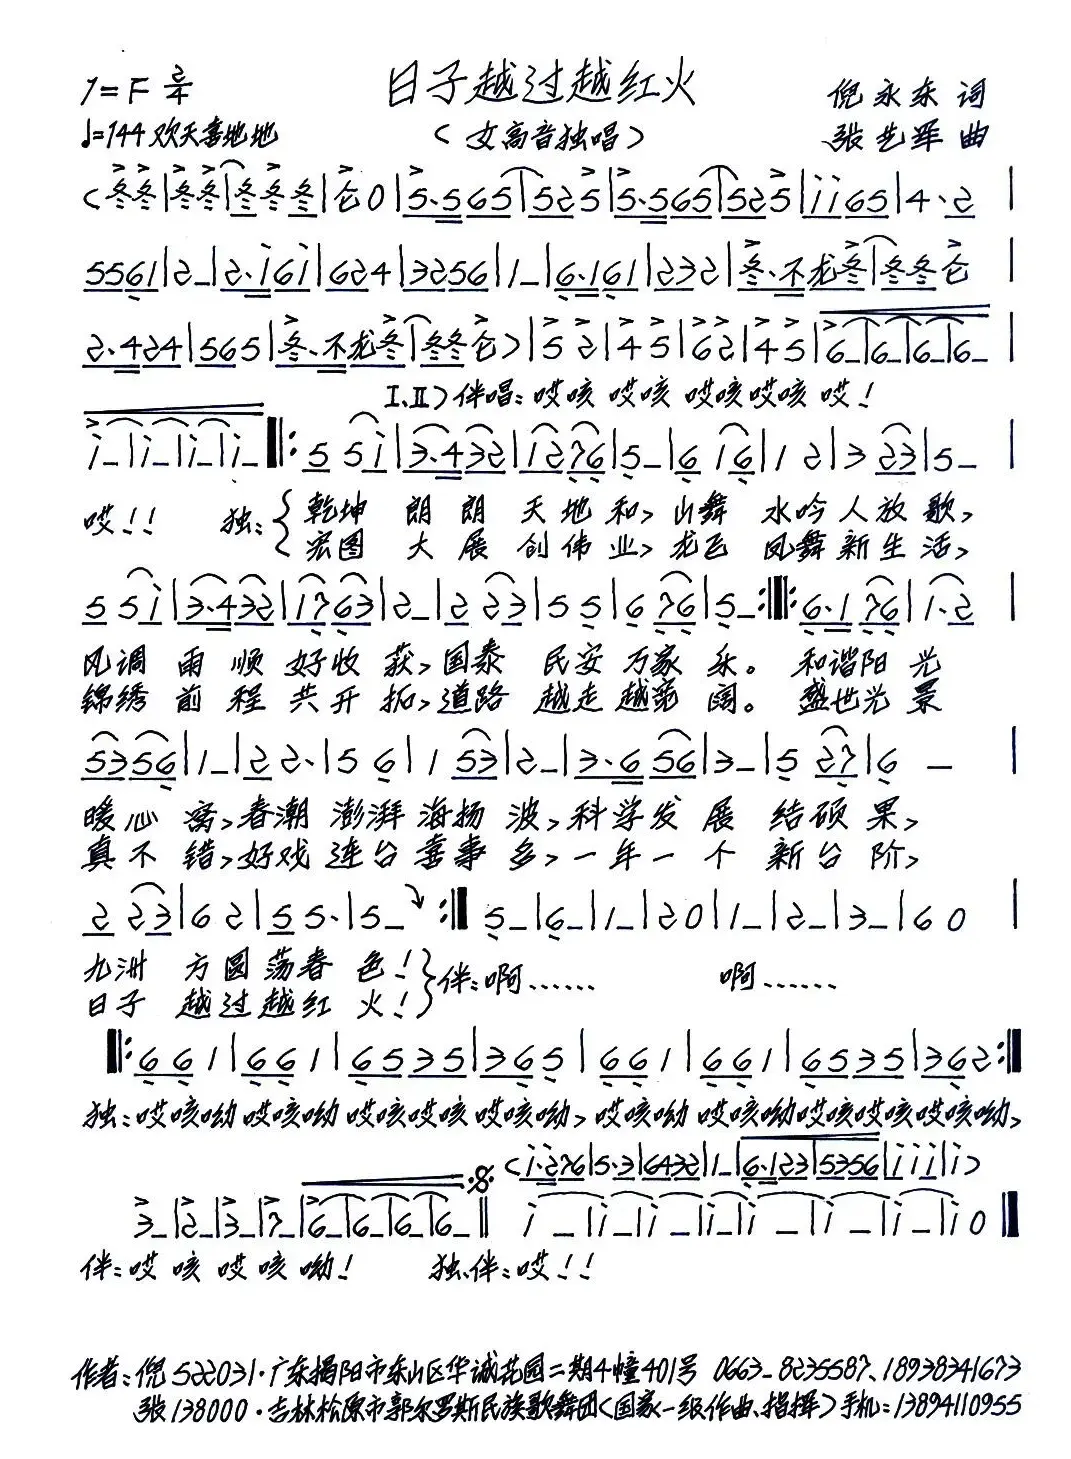 日子越过越红火
1=F 2/4
倪永东 词
♩=144 欢天喜地地
(女高音独唱)
张艺军 曲
(冬冬|冬冬|冬冬冬|仑0|5·565|525|5·565|525|ii65|4·2|
5561|2–|2·i6i|624|3256|1–|6·161|232|冬·不龙冬|冬冬仑|
2·424|565|冬·不龙冬|冬冬仑)|52|45|62|45|6–|6–|6–|6–|
I、II)伴唱:哎咳 哎咳 哎咳哎咳 哎!
i–|i–|i–|i–‖:55i|3·432|1276|5–|616|12|323|5–|
哎!! 独:乾坤 朗朗 天地和, 山舞 水吟人放歌,
宏图 大展 创伟业, 龙飞 凤舞新生活,
55i|3·432|1763|2–|223|55|676|5–:‖:6·176|1·2|
风调 雨顺 好收获, 国泰 民安万家乐。 和谐阳光
锦绣 前程 共开拓, 道路 越走越宽阔。 盛世光景
5356|1–|22·|56|153|2–|3·656|3–|527|6–|
暖心窝, 春潮 澎湃海扬波, 科学发展 结硕果,
真不错, 好戏 连台喜事多, 一年一个 新台阶,
223|62|55·|5–:‖5–|6–|1–|20|1–|2–|3–|60|
九洲 方圆荡春色!
伴:啊…… 啊……
日子 越过越红火!
‖:661|661|6535|365|661|661|6535|362:‖
独:哎咳呦哎咳呦哎咳哎咳哎咳呦, 哎咳呦哎咳呦哎咳哎咳哎咳呦,
(i·276|5·3|6432|1–|6·123|5356|iii|i)
3–|2–|3–|7–|6–|6–|6–|6–‖i–|i–|i–|i–|i–|i–|i–|i0‖
伴:哎咳哎咳呦! 独、伴:哎!!
作者:倪 522031·广东揭阳市东山区华诚花园二期4幢401号 0663–8235587、18938341673
张 138000·吉林松原市郭尔罗斯民族歌舞团(国家一级作曲、指挥)手机:13894110955